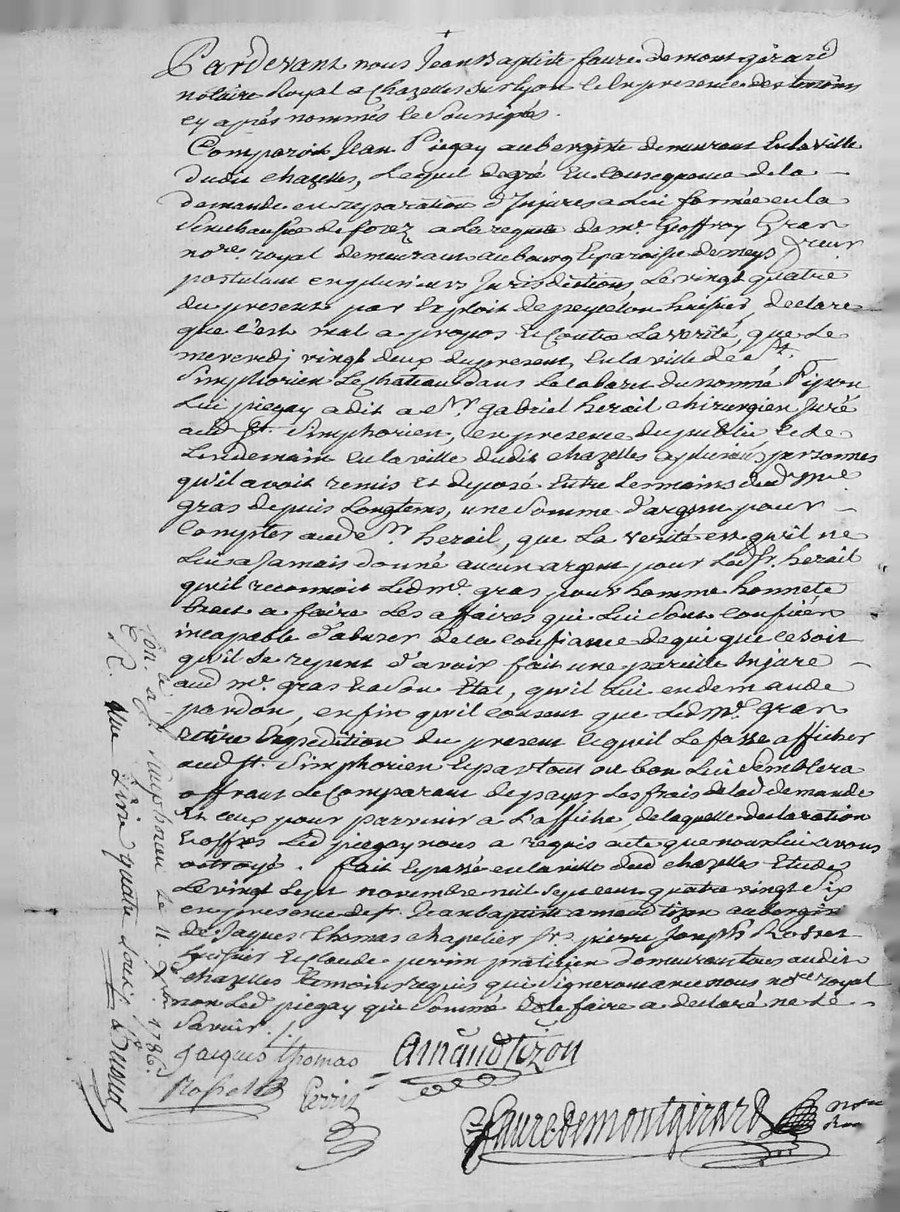 Pardevant nous Jean Baptiste faure demontgirard
notaire Royal a Chazelles sur lyon & en presence des temoins
cy après nommés & soussignés.
Comparoit Jean Piegay aubergiste demeurant en la ville
dudit chazelles, Lequel de gré En Consequence de la
demande en reparation d'Injures a lui formée en la
Senechaussée de forez a la requete de me. Geoffroy Gras
nore. royal demeurant au bourg & paroisse de meys
postulant en plusieurs Jurisdictions, Le vingt quatre
du present par Exploit de peyrelon huissier, declare
que c'est mal a propos & Contre La verité, que Le
mercredi vingt deux du present, En la ville de St.
Simphorien Le chateau dans Le cabaret du nommé Pipon
Lui piegay a dit a Sr. gabriel herail chirurgien Juré
aud. St. Simphorien, en presence du public & Le
Lendemain En la ville dudit chazelles a plusieurs personnes
qu'il avoit remis Et deposé Entre Les mains dud. me.
gras depuis Longtems, une Somme d'argent pour
Compter aud. Sr. herail, que La verité est qu'il ne
Lui a Jamais donné aucun argent pour Led. Sr. herail
qu'il reconnoit Led. me. gras pour homme honnete
Exact a faire Les affaires qui Lui Sont Confiées
incapable d'abuser de la Confiance de qui que ce Soit
qu'il Se repent d'avoir fait une pareille Injure
aud. me. gras & a Son Etat, qu'il Lui en demande
pardon, enfin qu'il consent que Led. me. gras
retire Expedition du present & qu'il Le fasse afficher
aud. St. Simphorien & partout ou bon Lui Semblera
offrant Le Comparant de payer Les frais de lad. demande
Et Ceux pour parvenir a L'affiche, de laquelle declaration
& offres Led. piegay nous a requis acte que nous Lui avons
octroyé. fait & passé en la ville dud. chazelles Etude
Le vingt Sept novembre mil Sept cent quatre vingt Six
en presence de Sr. Jean baptiste arnaud tizon aubergiste
de Jaques Thomas chapelier Sr. pierre Joseph Rosset
huissier & claude perrin praticien demeurant tous audit
chazelles Temoins requis qui Signeront avec nous nore. royal
non Led. piegay qui Sommé de le faire a declaré ne Le
Savoir.
Jacques thomas
Arnaud tizon
Rosset
Perrin
Faure demontgirard
Con. à St. Simphorien le 11 Xbre. 1786.
R. une Livre quatre Sous,